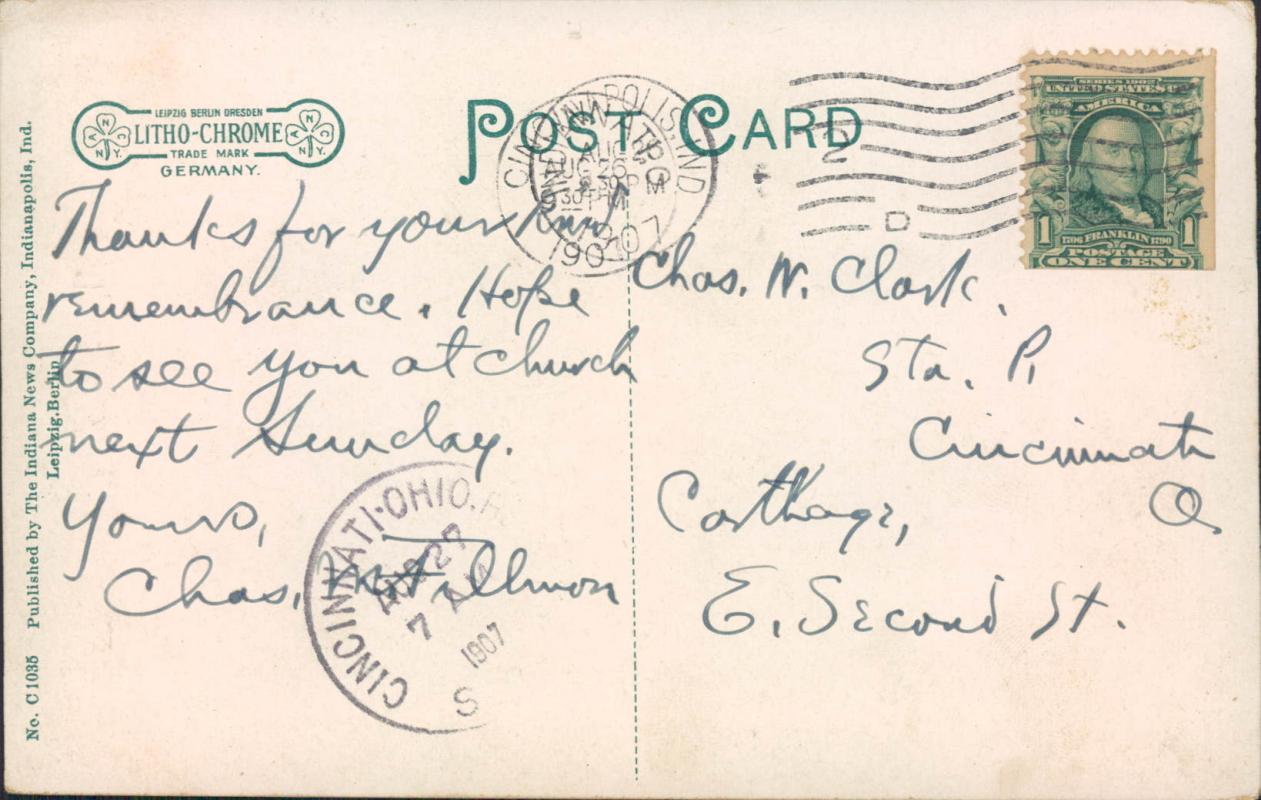 POST CARD
LEIPZIG BERLIN DRESDEN
LITHO-CHROME
TRADE MARK
GERMANY.
A N C N.Y.
A N C N.Y.
No. C 1035 Published by The Indiana News Company, Indianapolis, Ind.
Leipzig. Berlin
Thanks for your kind
remembrance. Hope
to see you at church
next Sunday.
Yours,
Chas. M. Fillmon
CINCINNATI, OHIO
AUG 26
30 PM
1907
INDIANAPOLIS, IND
PM
1907
2
D
SERIES 1902
UNITED STATES OF
AMERICA
1 1706 FRANKLIN 1790 1
POSTAGE
ONE CENT
Chas. W. Clark.
Sta. P,
Cincinnati
O.
Carthage,
E. Second St.
CINCINNATI. OHIO. R
AUG 27
7 AM
1907
S